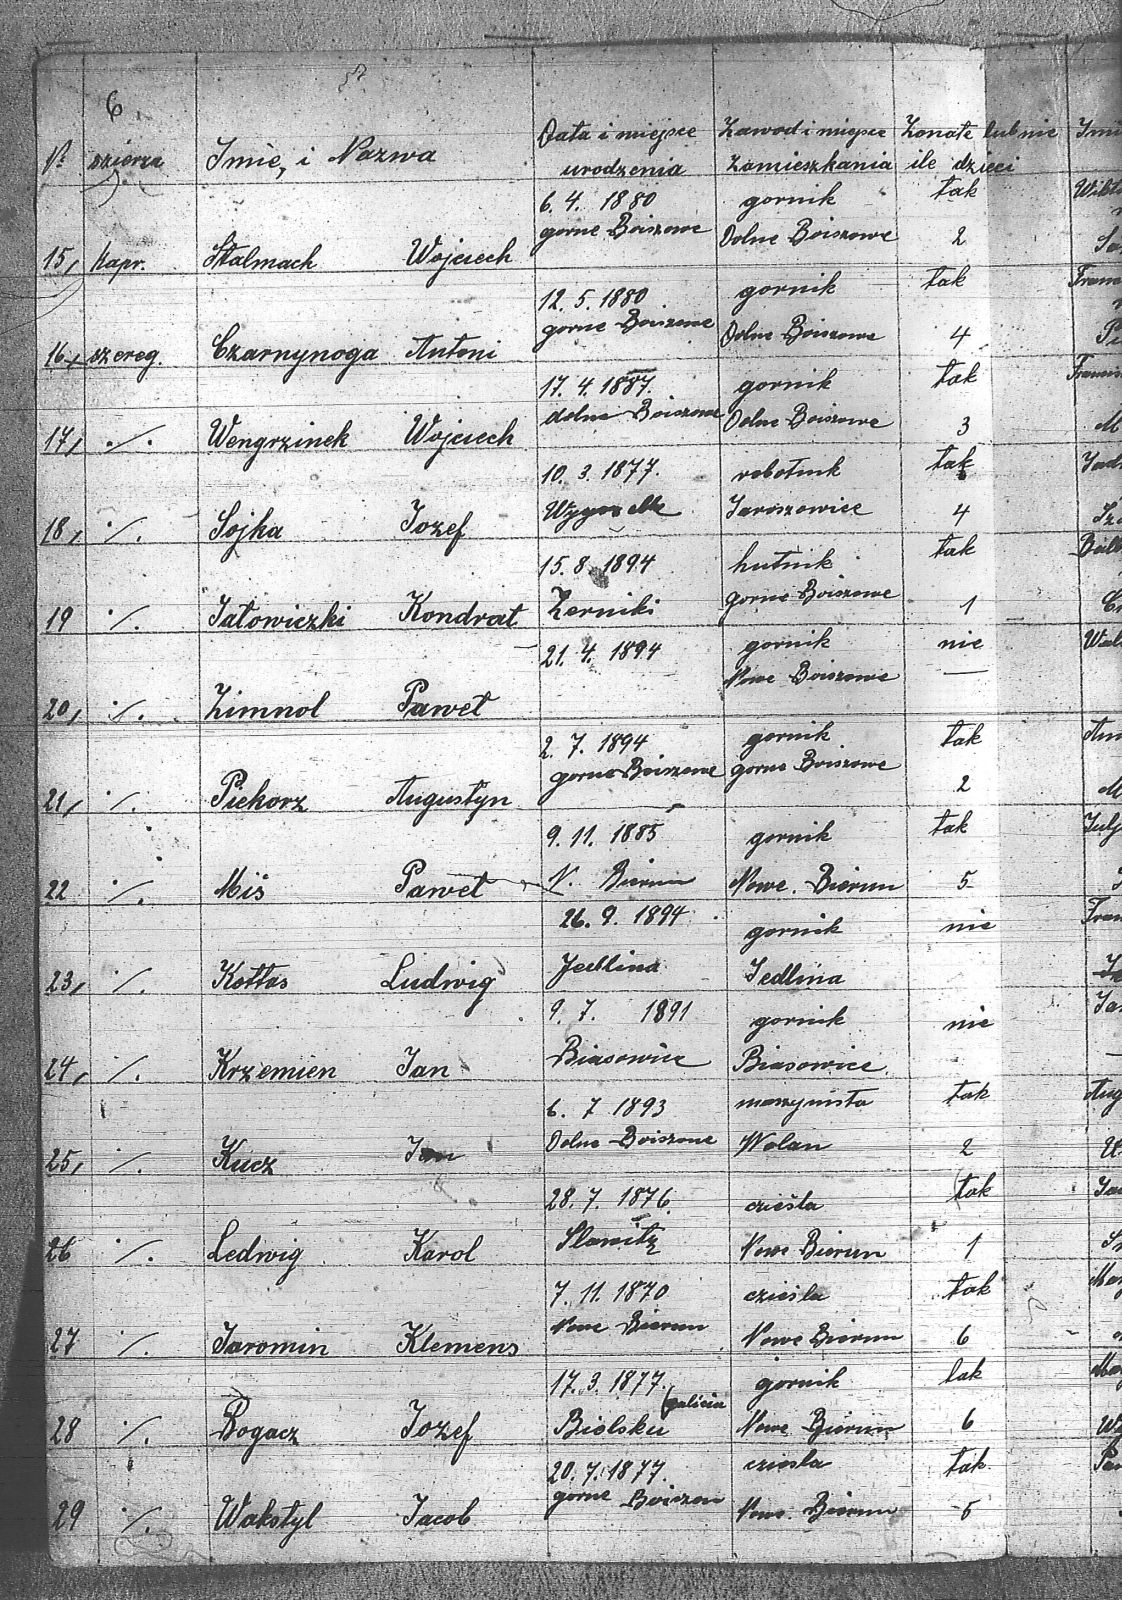 6
Nr szierza Imie, i Nazwa Data i miejsce urodzenia Zawod i miejsce Zamieszkania Zonate lub nie ile dzieci Imi
6. 4. 1880 gornik tak Wikt
15, Kapr. Stalmach Wojciech gorne Boiszowe Dolne Boiszowe 2
12. 5. 1880 gornik tak Franc
16+ szereg. Czarnynoga Antoni gorne Boiszowe Dolne Boiszowe 4
17. 4. 1887. gornik tak Francis
17, ·/. Wengrzinek Wojciech dolne Boiszowe Dolne Boiszowe 3 M
10. 3. 1877. robotnik tak Jad
18, ·/. Sojka Jozef Jaroszowice 4
15. 8. 1894 hutnik tak
19 ·/. Jatowiczki Kondrat Zerniki gorne Boiszowe 1
21. 4. 1894 gornik nie Wal
20, ·/. Zimnol Pawet Nowe Boiszowe —
2. 7. 1894 gornik tak
21, ·/. Piekorz Augustyn gorne Boiszowe gorne Boiszowe 2 M
9. 11. 1885 gornik tak Julj
22 ·/. Miś Pawet N. Bierun Nowe. Bierun 5
26. 9. 1894 gornik nie Fran
23, ·/. Kottas Ludwig Jedlina Jedlina
9. 7. 1891 gornik nie Jan
24, ·/. Krzemien Jan Biasowice Biasowice. —
6. 7 1893 maszynista tak Aug
25, ·/. Kucz Jan Dolne Boiszone Wolan 2
28. 7. 1876. cieśla tak
26 ·/. Ledwig Karol Slawitz Nowe Bierun 1
7. 11. 1870 cieśla tak
27 ·/. Jaromin Klemens Nowe Bierun Nowe Bierun 6
17. 3. 1877. gornik tak
28 ·/. Bogacz Jozef Bielsku (galicia Nowe Bierun 6
20. 7. 1877. cziesla tak
29 ·/. Wakstyl Jacob gorne Boiszon Nowe. Bierun 5